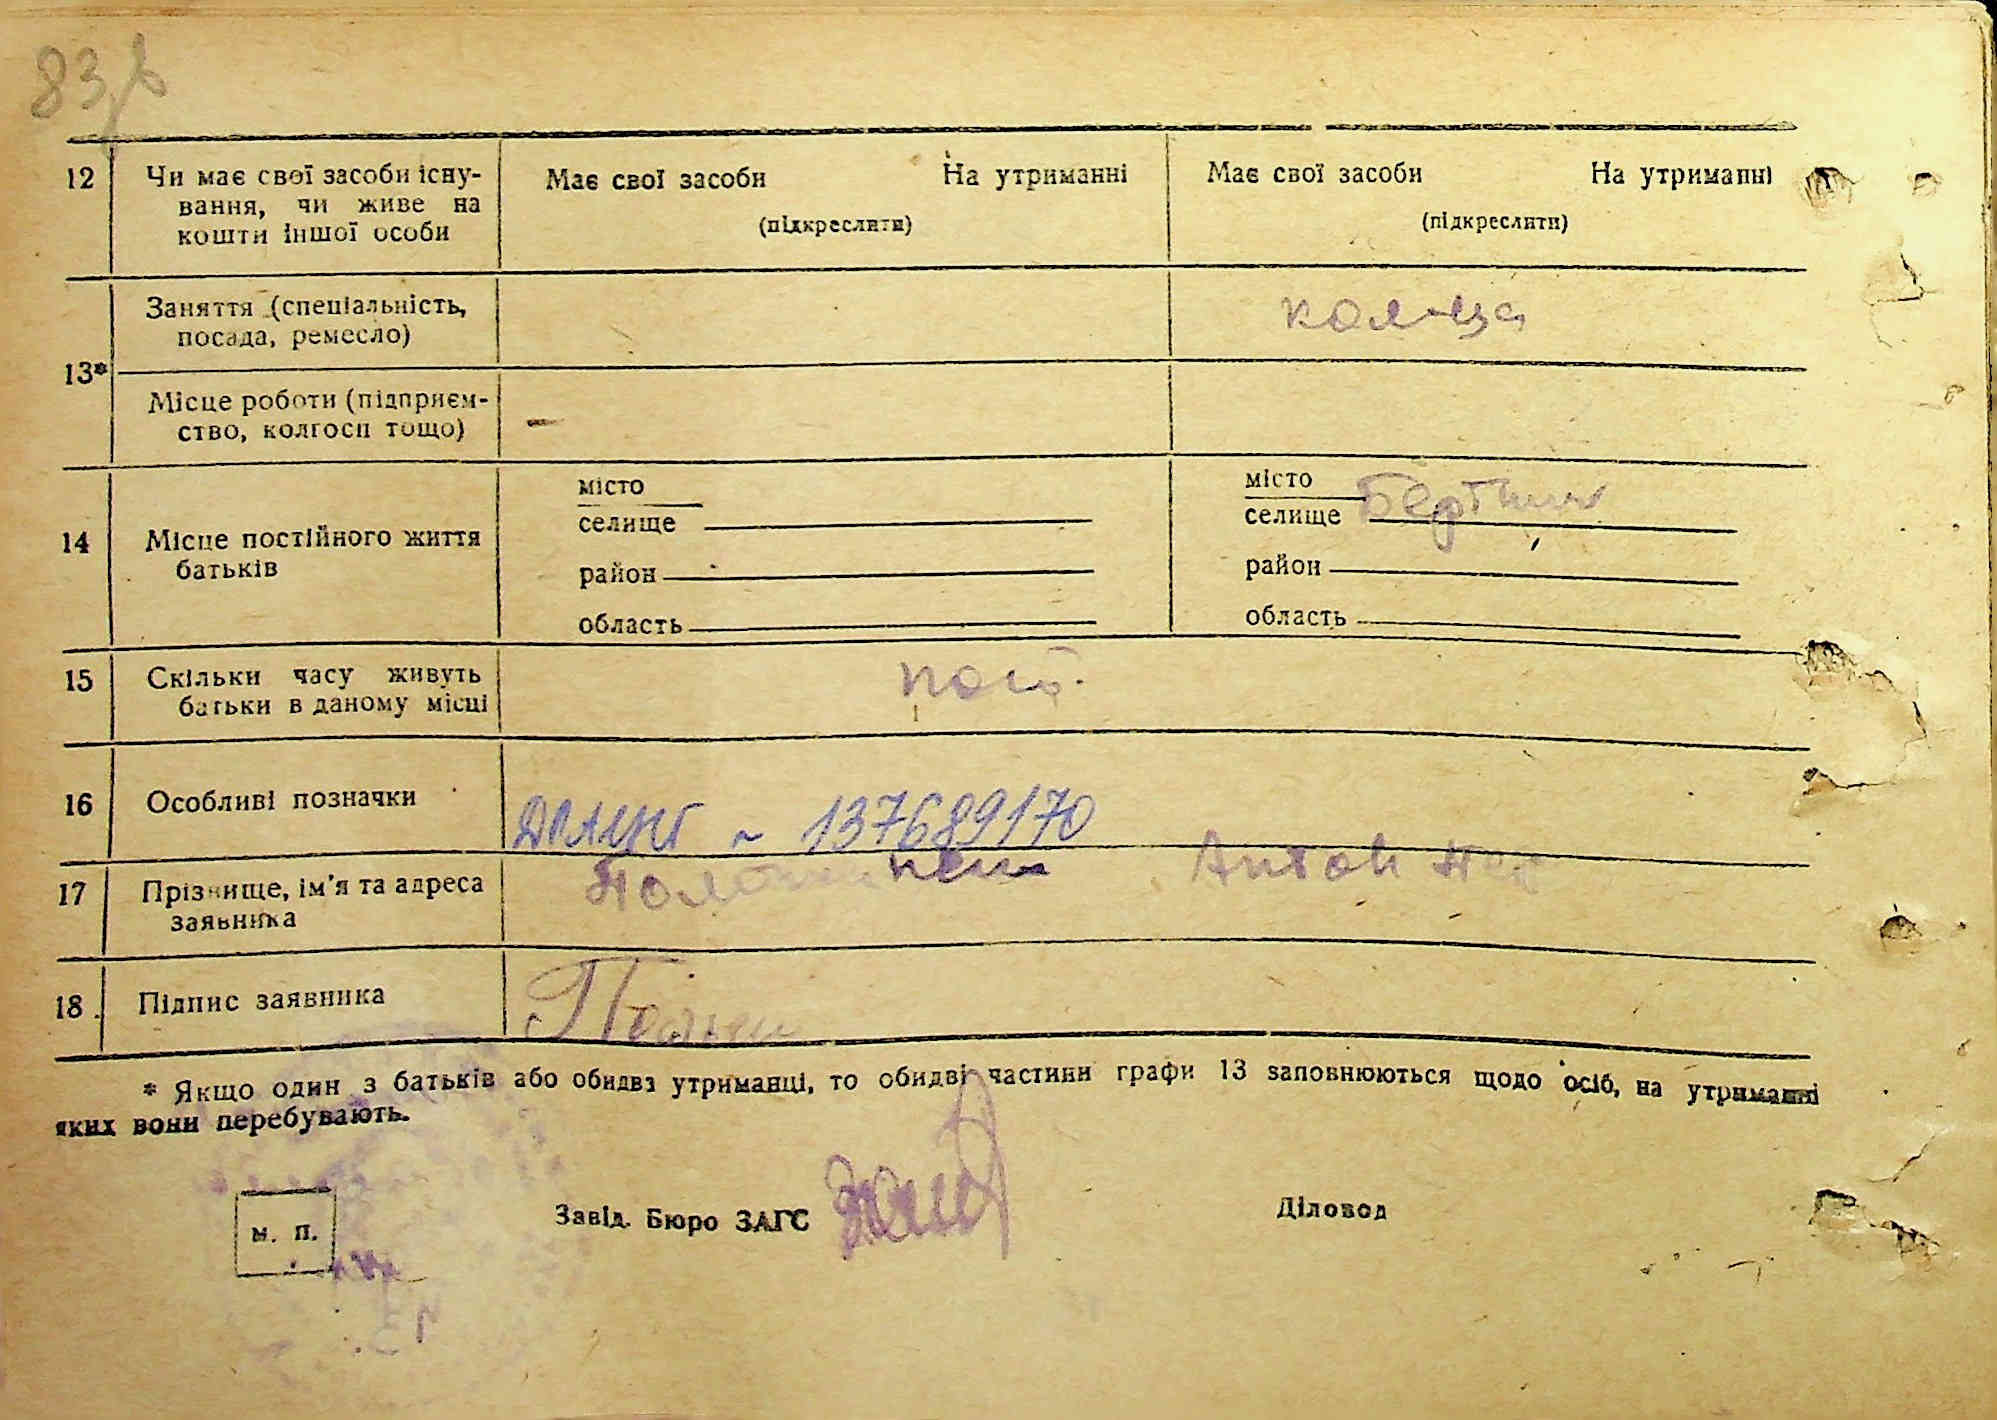 83
12 Чи має свої засоби існу- Має свої засоби На утриманні Має свої засоби На утриманні
вання, чи живе на (підкреслити) (підкреслити)
кошти іншої особи
Заняття (спеціальність,
посада, ремесло)
13*
Місце роботи (підприєм-
ство, колгосп тощо)
місто місто
селище селище
14 Місце постійного життя
батьків
район район
область область
15 Скільки часу живуть пост.
батьки в даному місці
16 Особливі позначки ДРАЦСГ ~ 137689170
17 Прізвище, ім'я та адреса Антон
заявника
18. Підпис заявника
* Якщо один з батьків або обидва утриманці, то обидві частини графи 13 заповнюються щодо осіб, на утриманні
яких вони перебувають.
м. п. Завід. Бюро ЗАГС Діловод